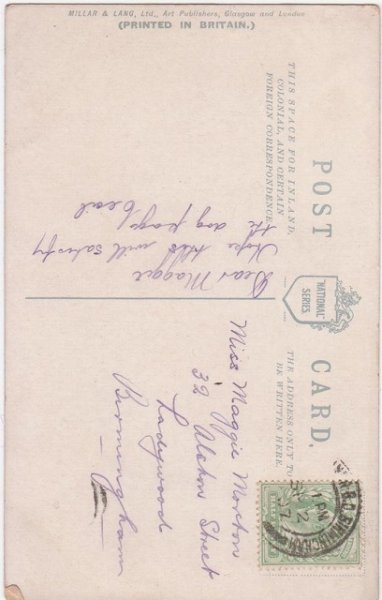 MILLAR & LANG, Ltd., Art Publishers, Glasgow and London
(PRINTED IN BRITAIN.)
POST CARD.
THIS SPACE FOR INLAND,
COLONIAL, AND CERTAIN
FOREIGN CORRESPONDENCE.
"NATIONAL"
SERIES
THE ADDRESS ONLY TO
BE WRITTEN HERE.
Dear Maggie
Hope this will satisfy
the dog
Miss Maggie Moreton
32 Street
Ladywood
Birmingham
1 PM